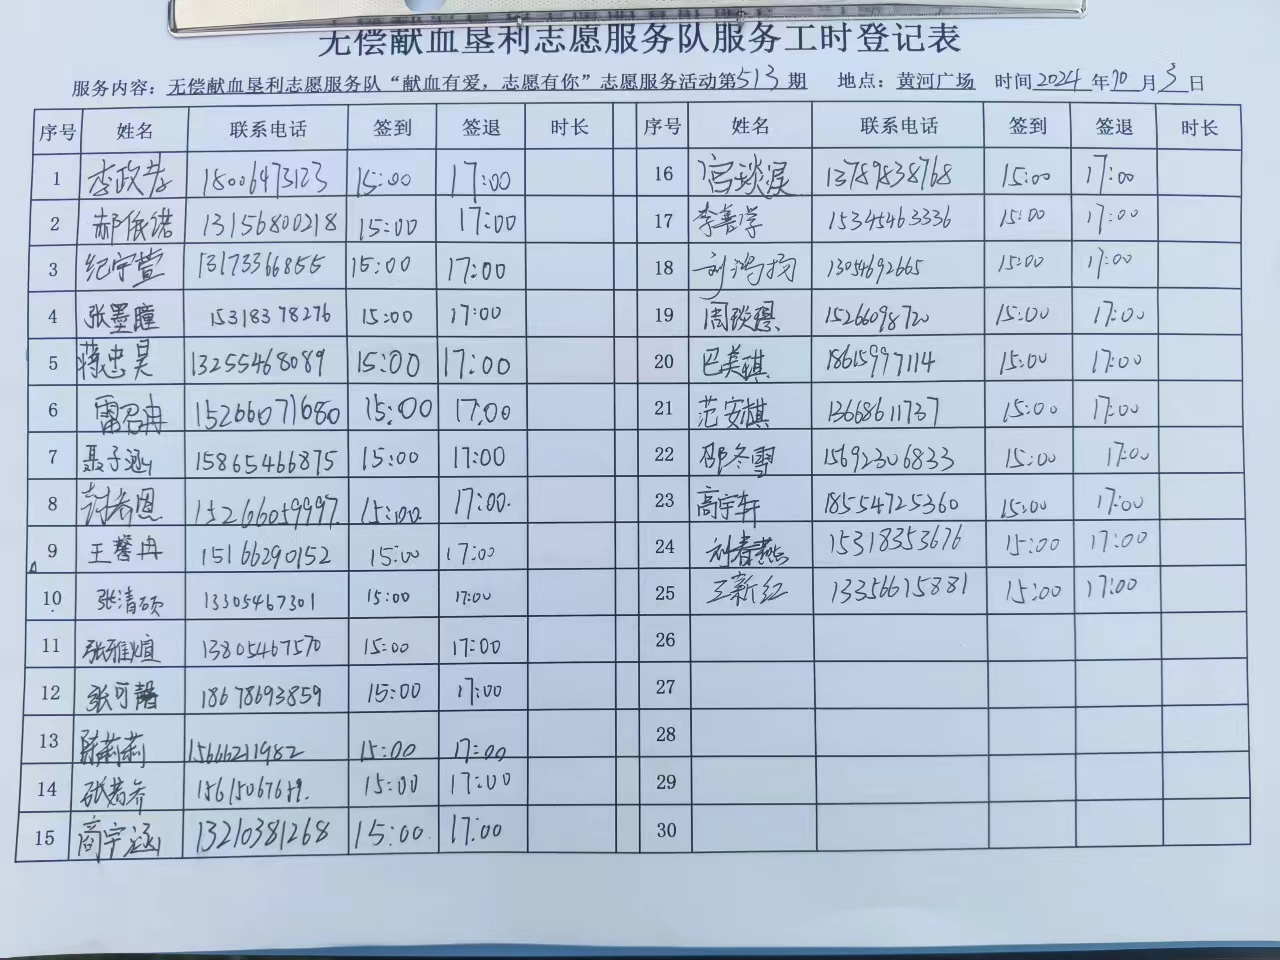 无偿献血垦利志愿服务队服务工时登记表
服务内容：无偿献血垦利志愿服务队“献血有爱，志愿有你”志愿服务活动第513期 地点：黄河广场 时间2024年10月3日
序号 姓名 联系电话 签到 签退 时长 序号 姓名 联系电话 签到 签退 时长
1 李政 18006473123 15:00 17:00 16 宫 13789838768 15:00 17:00
2 郝依诺 13156800218 15:00 17:00 17 李善学 15345463336 15:00 17:00
3 纪宇萱 13173366855 15:00 17:00 18 刘鸿 13054692665 15:00 17:00
4 张墨瞳 15318378276 15:00 17:00 19 周 15266098720 15:00 17:00
5 蒋忠昊 13255468089 15:00 17:00 20 巴美琪 18615997114 15:00 17:00
6 雷召冉 15266071680 15:00 17:00 21 范安棋 13668611737 15:00 17:00
7 聂子涵 15865466875 15:00 17:00 22 邵冬雪 15692306833 15:00 17:00
8 封希恩 15266059997 15:00 17:00 23 高宇轩 18554725360 15:00 17:00
9 王馨冉 15166290152 15:00 17:00 24 刘春燕 15318353676 15:00 17:00
10 张清硕 13305467301 15:00 17:00 25 王新红 13356615881 15:00 17:00
11 张雅煊 13805467570 15:00 17:00 26
12 张可馨 18678693859 15:00 17:00 27
13 陈莉莉 15666211982 15:00 17:00 28
14 张 15:00 17:00 29
15 商宇涵 13210381268 15:00 17:00 30